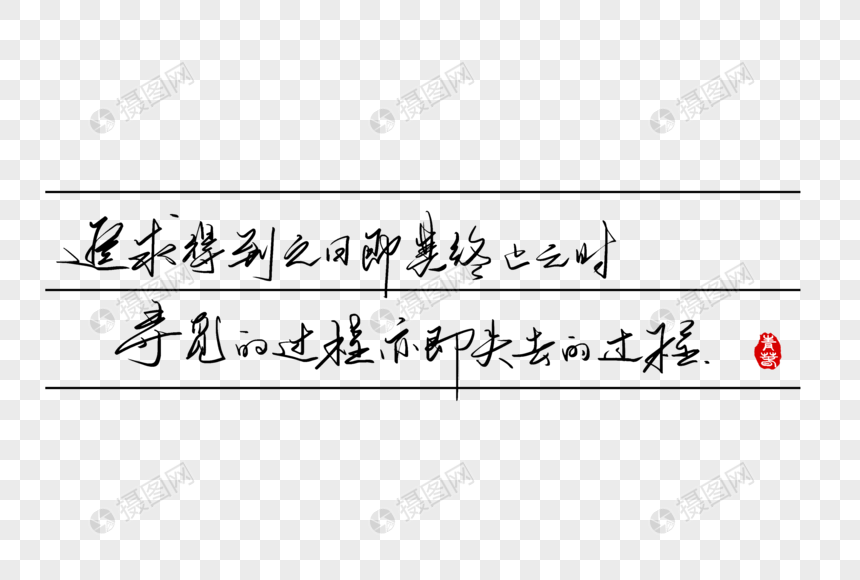 追求得到之日即其终止之时
寻觅的过程亦即失去的过程.
青春
摄图网
摄图网
摄图网
摄图网
摄图网
摄图网
摄图网
摄图网
摄图网